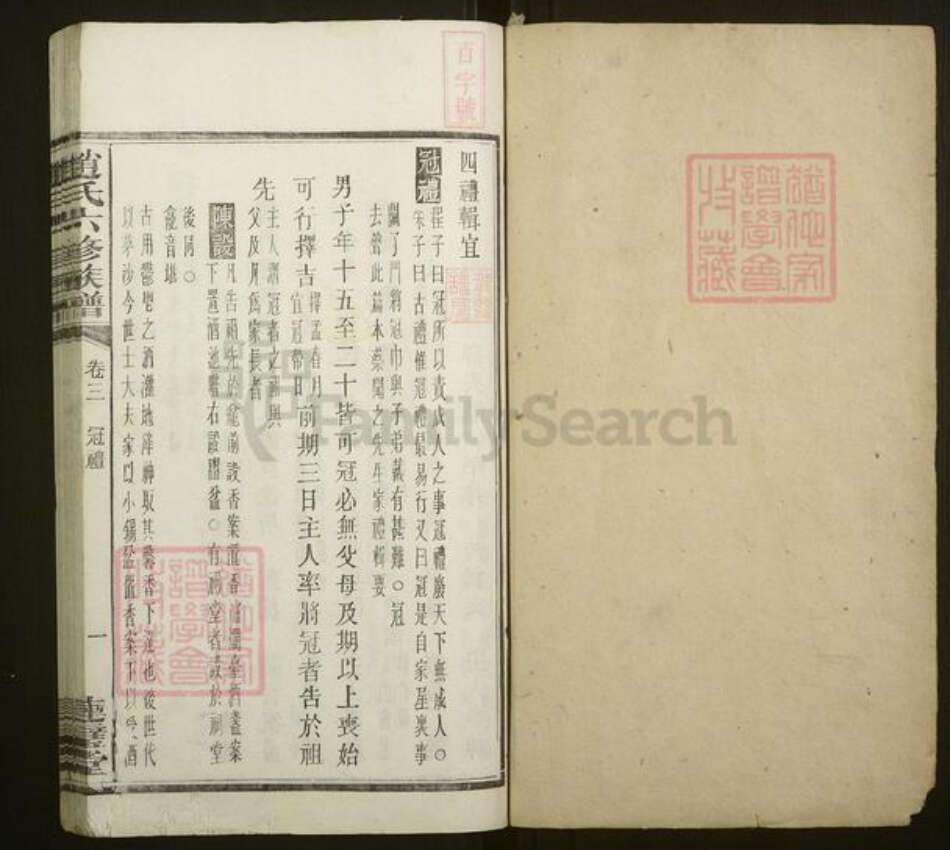 百字號
四禮輯宜
冠禮
程子曰冠所以責成人之事冠禮廢天下無成人○
朱子曰古禮惟冠禮最易行又曰冠是自家屋裏事
關了門將冠巾與子弟戴有甚難○冠
去營此篇本蔡聞之先生家禮輯要
男子年十五至二十皆可冠必無父母及期以上喪始
可行擇吉
擇孟春月
宜冠帶日
前期三日主人率將冠者告於祖
先
主人謂冠者之祖與
父及凡為家長者
陳設
凡告祠先於龕前設香案
下置酒
右設盥盆○有祠堂者設於祠堂
後同○
龕音堪
古用鬱鬯之酒灌地降神取其馨香下達也後世代
以茅沙今世士大夫家以小錫盆置香案下以受酒
趙氏六修族譜
卷三
冠禮
一
猶他家譜學會收藏
猶他家譜學會收藏
FamilySearch